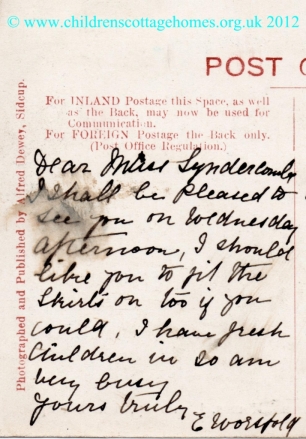 © www.childrenscottagehomes.org.uk 2012
POST
For INLAND Postage this Space, as well
as the Back, may now be used for
Communication.
For FOREIGN Postage the Back only.
(Post Office Regulation.)
Photographed and Published by Alfred Dewey, Sidcup.
Dear Miss Syndercombe
I shall be pleased to
see you on Wednesday
afternoon, I should
like you to fit the
Skirts on too if you
could, I have fresh
Children in so am
very busy
yours truly
E Worsfold